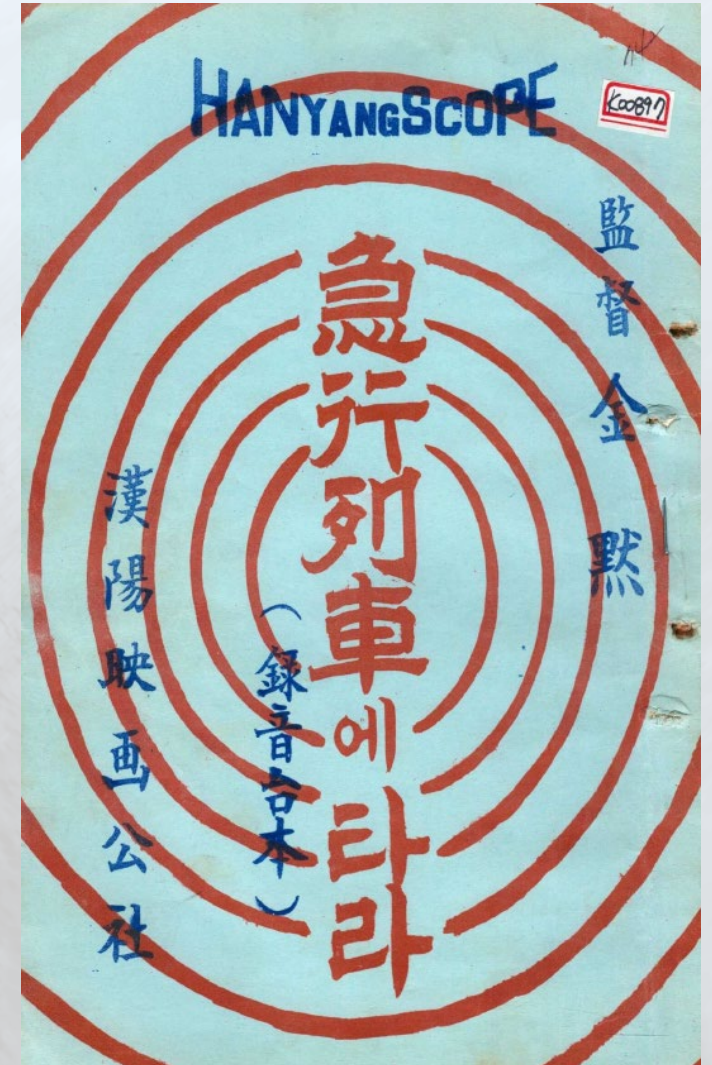 HANYANGSCOPE
K00897
監督 金 黙
急行列車에 타라
(録音台本)
漢陽映画公社